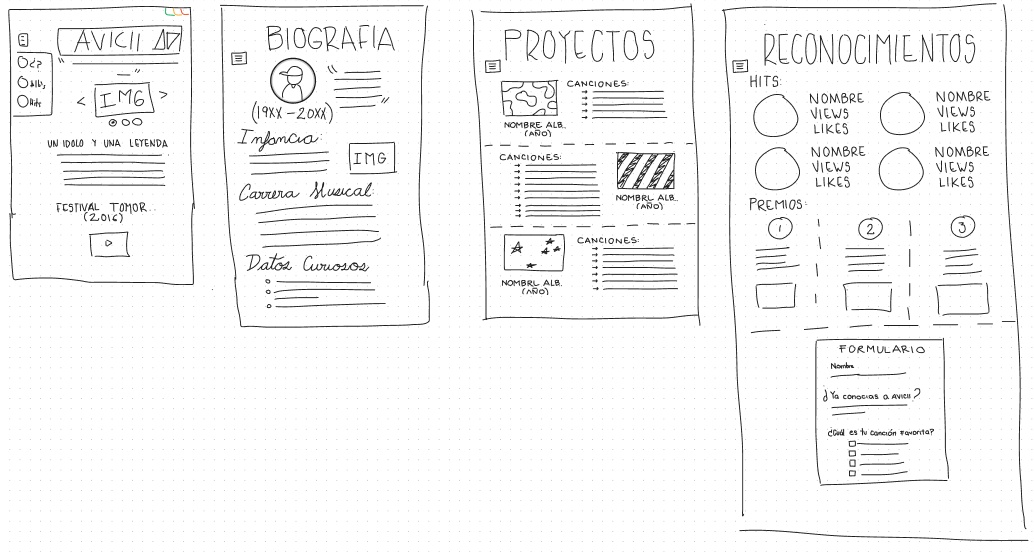 AVICII
¿?
Hits
"
"
< IMG >
UN IDOLO Y UNA LEYENDA
FESTIVAL TOMOR..
(2016)
BIOGRAFIA
"
"
(19XX - 20XX)
Infancia:
IMG
Carrera Musical:
Datos Curiosos
PROYECTOS
CANCIONES:
NOMBRE ALB.
(AÑO)
CANCIONES:
NOMBRE ALB.
(AÑO)
CANCIONES:
NOMBRE ALB.
(AÑO)
RECONOCIMIENTOS
HITS:
NOMBRE
VIEWS
LIKES
NOMBRE
VIEWS
LIKES
NOMBRE
VIEWS
LIKES
NOMBRE
VIEWS
LIKES
PREMIOS:
1
2
3
FORMULARIO
Nombre
¿Ya conocías a AVICII?
¿Cuál es tu canción favorita?